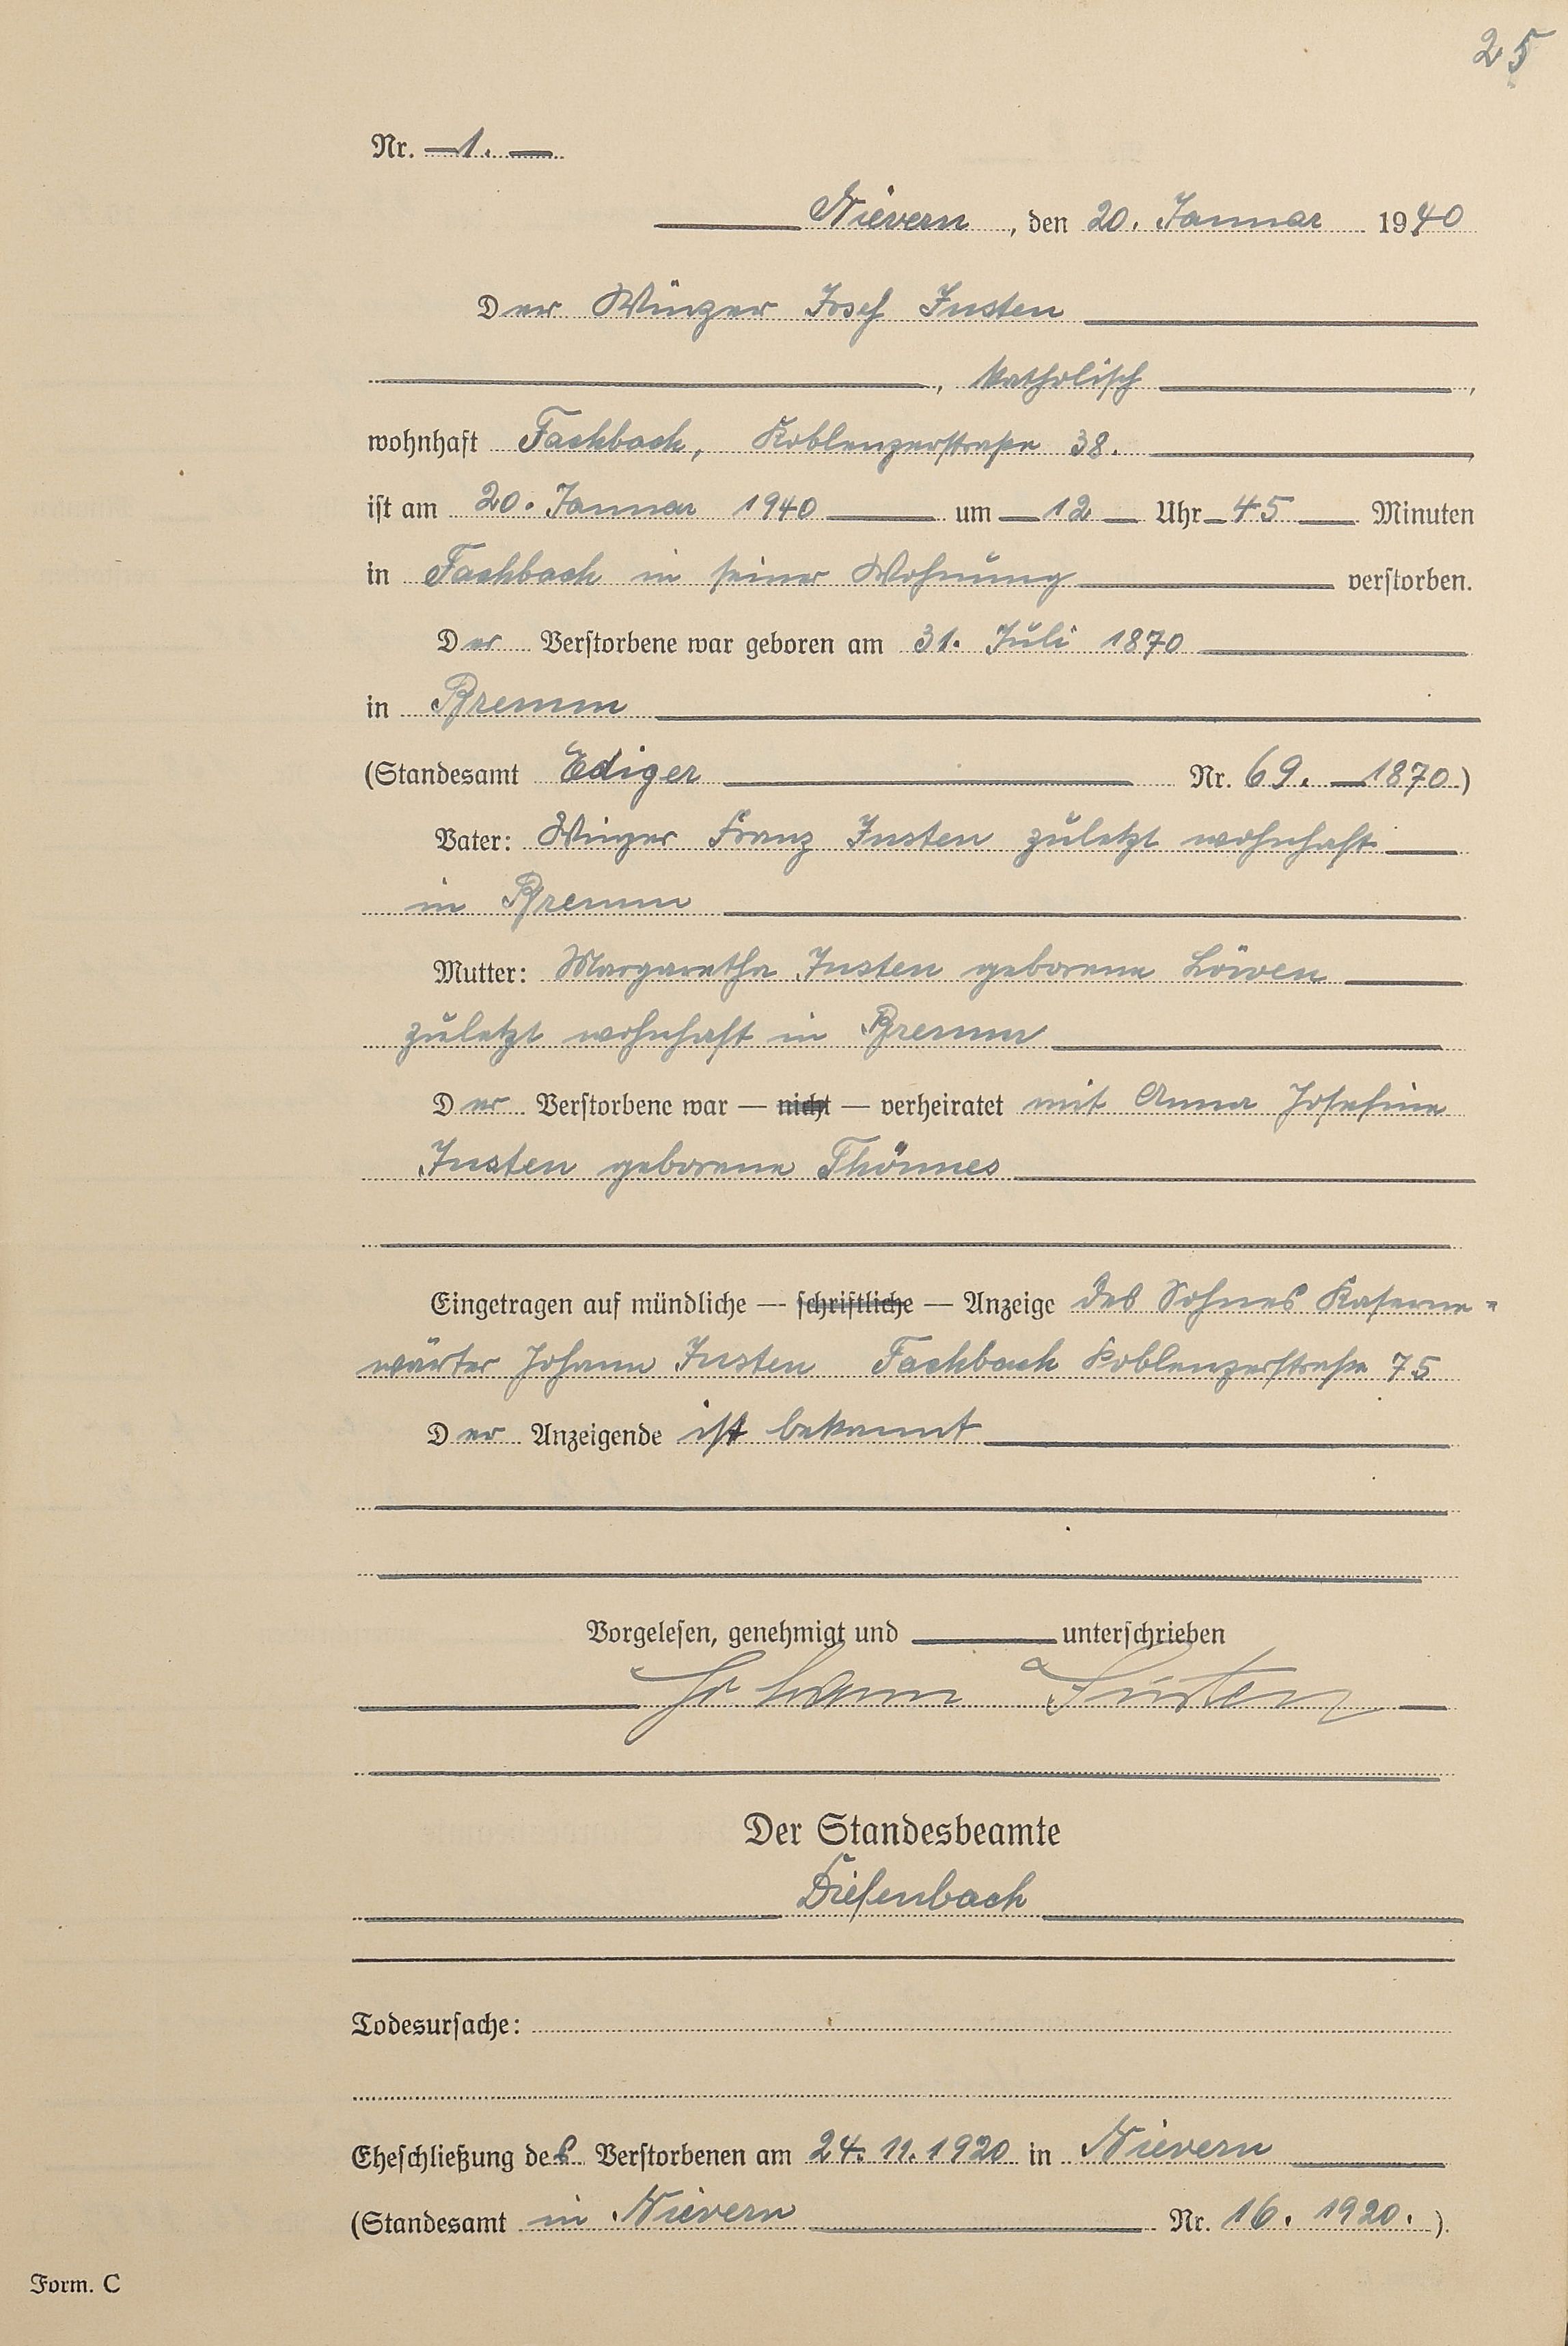 25
Nr. 1.
Nievern, den 20. Januar 1940
Der Winzer Josef Justen
, katholisch ,
wohnhaft Fachbach, Koblenzerstraße 38.
ist am 20. Januar 1940 um 12 Uhr 45 Minuten
in Fachbach in seiner Wohnung verstorben.
Der Verstorbene war geboren am 31. Juli 1870
in Bremm
(Standesamt Ediger Nr. 69. 1870.)
Vater: Winzer Franz Justen zuletzt wohnhaft
in Bremm
Mutter: Margaretha Justen geborene Löwen
zuletzt wohnhaft in Bremm
Der Verstorbene war — nicht — verheiratet mit Anna Josefine
Justen geborene Thönnes
Eingetragen auf mündliche — schriftliche — Anzeige des Sohnes Kaserne-
wärter Johann Justen Fachbach Koblenzerstraße 75
Der Anzeigende ist bekannt
Vorgelesen, genehmigt und unterschrieben
Johann Justen
Der Standesbeamte
Diefenbach
Todesursache:
Eheschließung des Verstorbenen am 24. 11. 1920 in Nievern
(Standesamt in Nievern Nr. 16. 1920. ).
Form. C